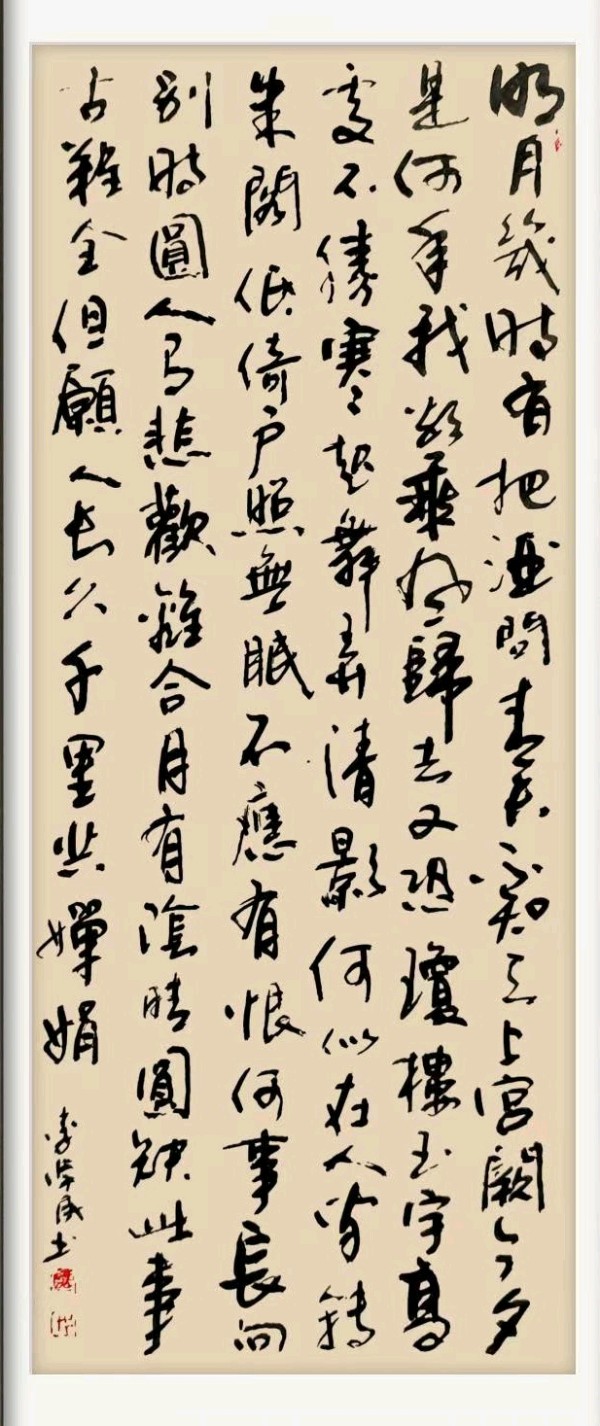 明月幾時有把酒問青天不知天上宮闕今夕
是何年我欲乘風歸去又恐瓊樓玉宇高
處不勝寒起舞弄清影何似在人間轉
朱閣低倚戶照無眠不應有恨何事長向
別時圓人有悲歡離合月有陰晴圓缺此事
古難全但願人長久千里共嬋娟